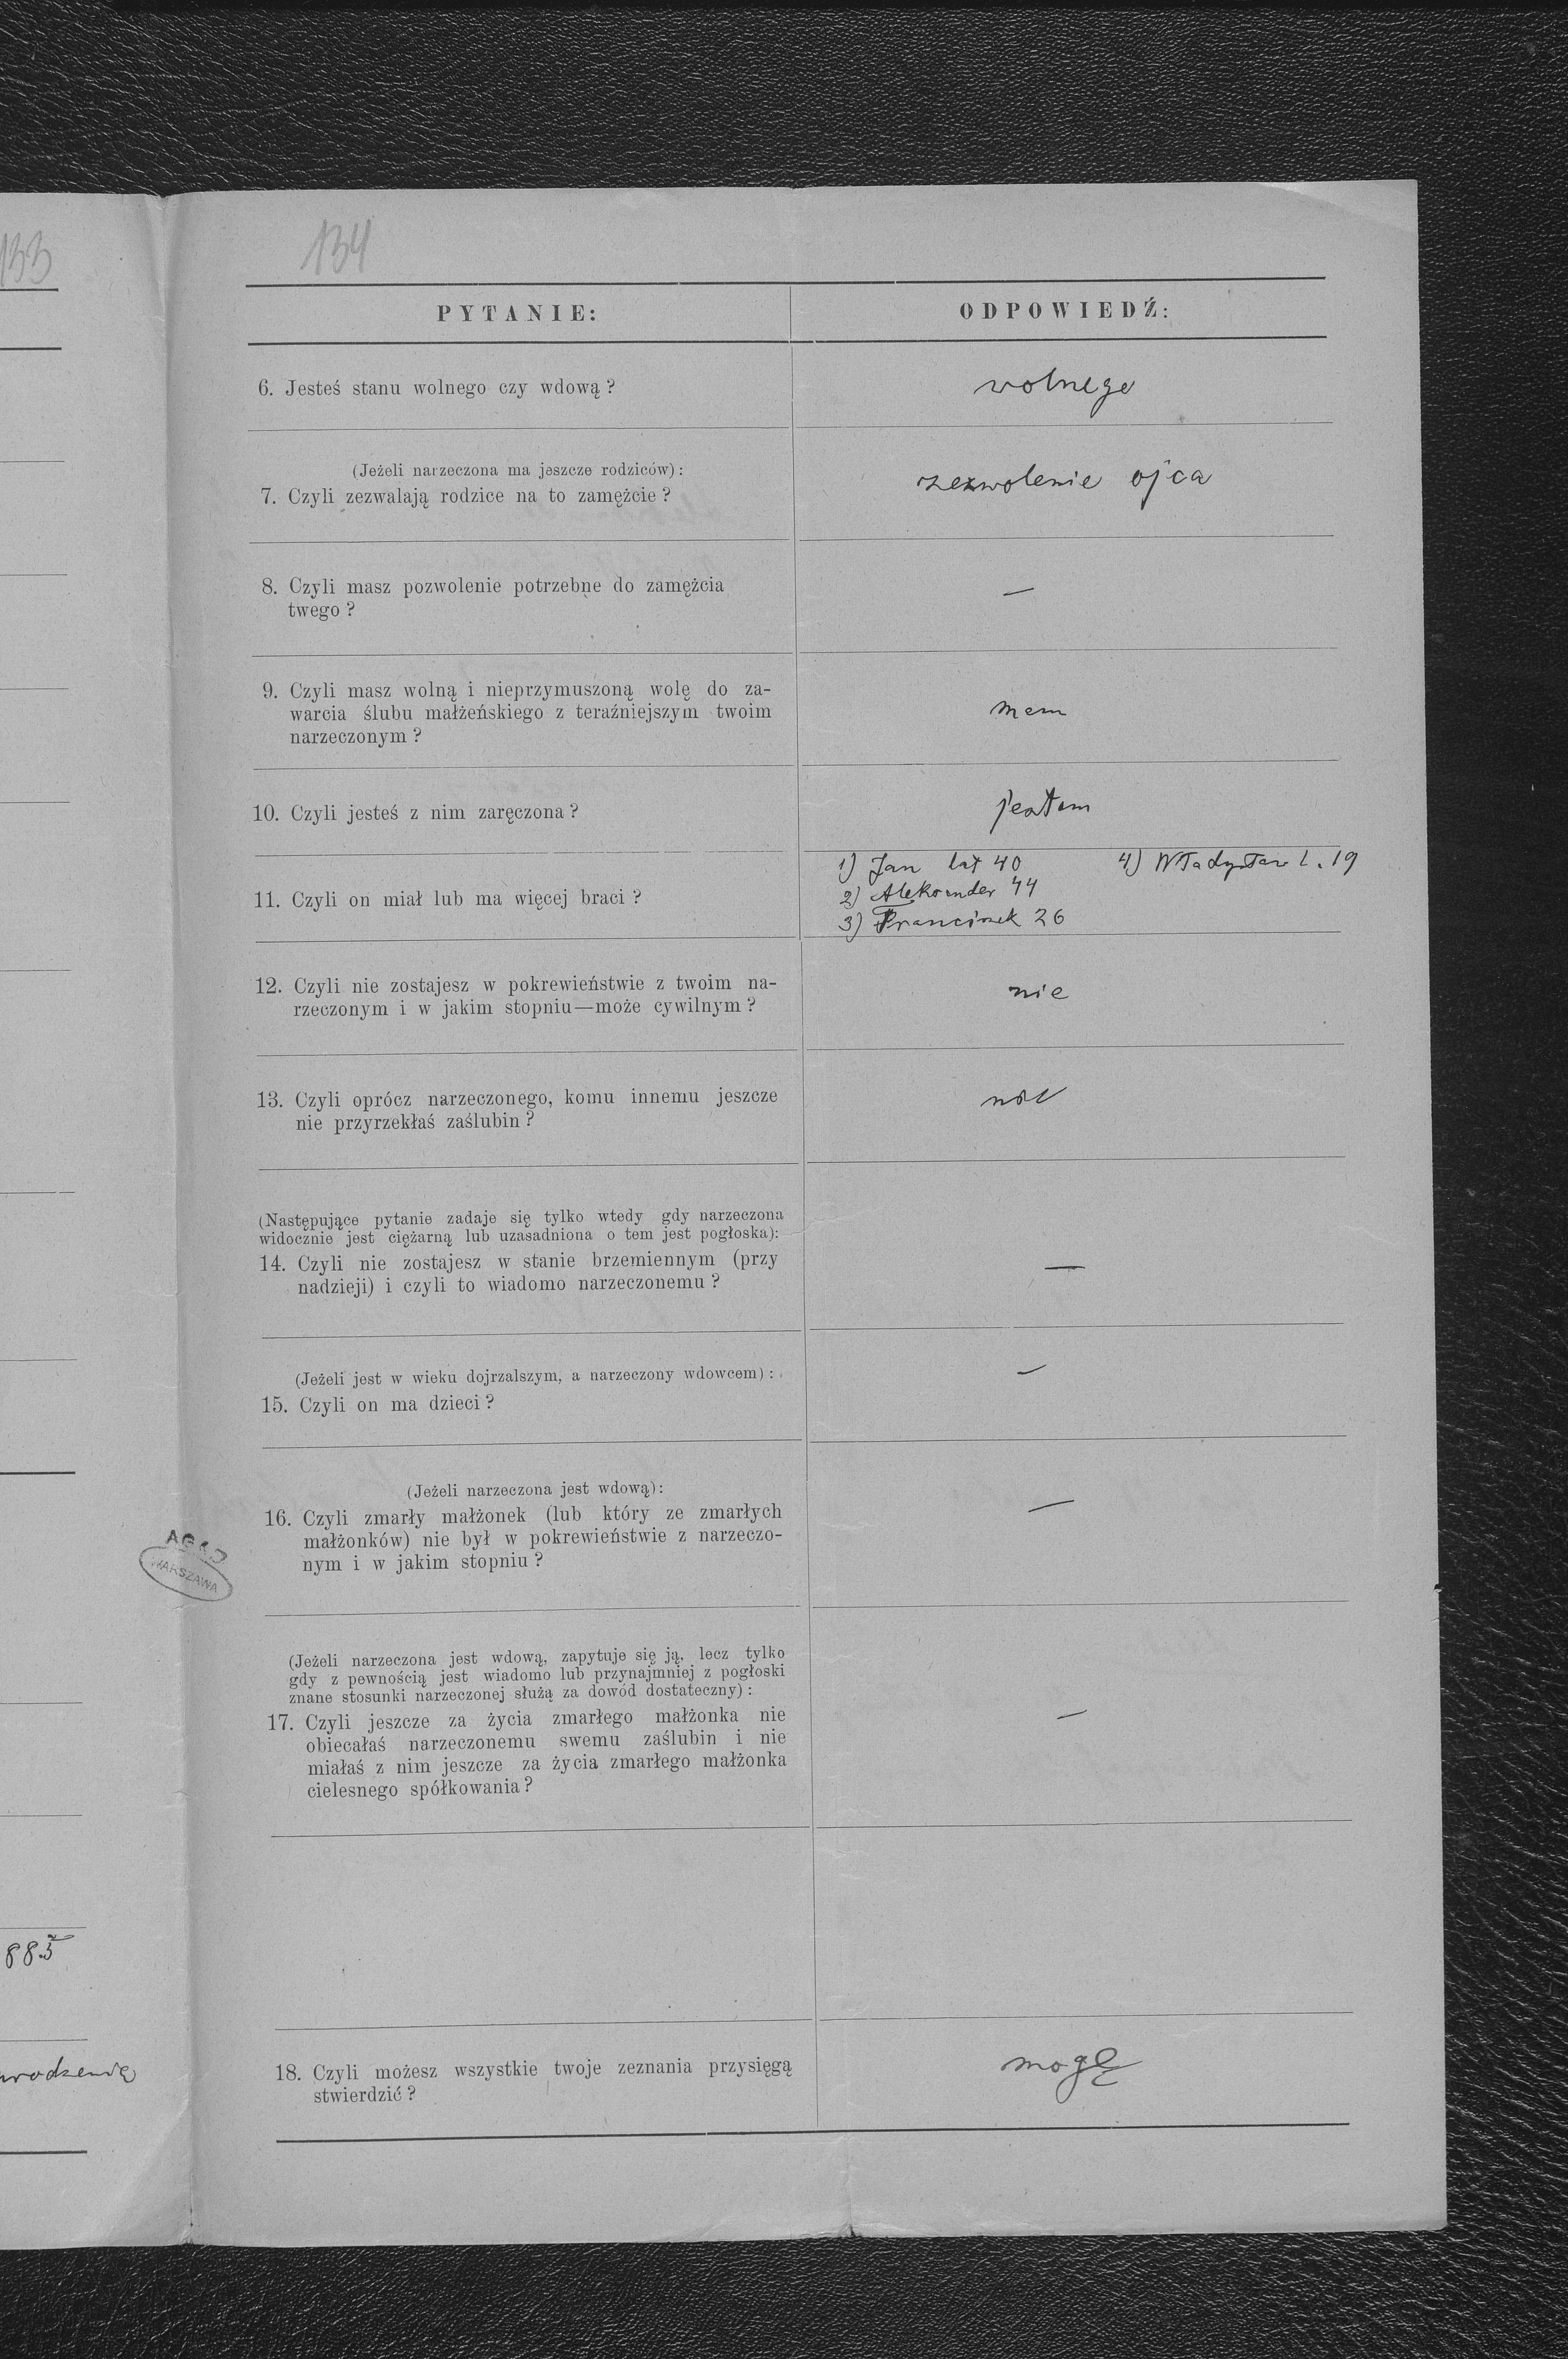 133
134
PYTANIE:
ODPOWIEDŹ:
6. Jesteś stanu wolnego czy wdową?
wolnego
(Jeżeli narzeczona ma jeszcze rodziców):
7. Czyli zezwalają rodzice na to zamężcie?
zezwolenie ojca
8. Czyli masz pozwolenie potrzebne do zamężcia
twego?
—
9. Czyli masz wolną i nieprzymuszoną wolę do za-
warcia ślubu małżeńskiego z teraźniejszym twoim
narzeczonym?
mam
10. Czyli jesteś z nim zaręczona?
jestem
11. Czyli on miał lub ma więcej braci?
1) Jan lat 40
2) Aleksander 44
3) Franciszek 26
4) Władysław l. 19
12. Czyli nie zostajesz w pokrewieństwie z twoim na-
rzeczonym i w jakim stopniu—może cywilnym?
nie
13. Czyli oprócz narzeczonego, komu innemu jeszcze
nie przyrzekłaś zaślubin?
nie
(Następujące pytanie zadaje się tylko wtedy gdy narzeczona
widocznie jest ciężarną lub uzasadniona o tem jest pogłoska):
14. Czyli nie zostajesz w stanie brzemiennym (przy
nadzieji) i czyli to wiadomo narzeczonemu?
—
(Jeżeli jest w wieku dojrzalszym, a narzeczony wdowcem):
15. Czyli on ma dzieci?
—
(Jeżeli narzeczona jest wdową):
16. Czyli zmarły małżonek (lub który ze zmarłych
małżonków) nie był w pokrewieństwie z narzeczo-
nym i w jakim stopniu?
—
AGAD
WARSZAWA
(Jeżeli narzeczona jest wdową, zapytuje się ją, lecz tylko
gdy z pewnością jest wiadomo lub przynajmniej z pogłoski
znane stosunki narzeczonej służą za dowód dostateczny):
17. Czyli jeszcze za życia zmarłego małżonka nie
obiecałaś narzeczonemu swemu zaślubin i nie
miałaś z nim jeszcze za życia zmarłego małżonka
cielesnego spółkowania?
—
885
18. Czyli możesz wszystkie twoje zeznania przysięgą
stwierdzić?
mogę